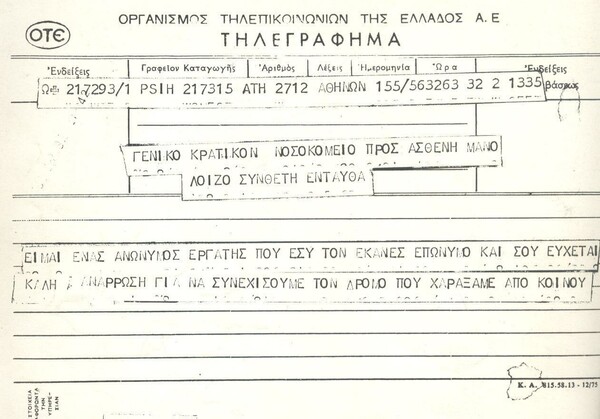 ΟΡΓΑΝΙΣΜΟΣ ΤΗΛΕΠΙΚΟΙΝΩΝΙΩΝ ΤΗΣ ΕΛΛΑΔΟΣ Α.Ε
ΟΤΕ
ΤΗΛΕΓΡΑΦΗΜΑ
Ἐνδείξεις Γραφεῖον Καταγωγῆς Ἀριθμὸς Λέξεις Ἡμερομηνία Ὥρα Ἐνδείξεις
217293/1 PSIH 217315 ΑΤΗ 2712 ΑΘΗΝΩΝ 155/563263 32 2 1335
ΓΕΝΙΚΟ ΚΡΑΤΙΚΟΝ ΝΟΣΟΚΟΜΕΙΟ ΠΡΟΣ ΑΣΘΕΝΗ ΜΑΝΟ
ΛΟΙΖΟ ΣΥΝΘΕΤΗ ΕΝΤΑΥΘΑ
ΕΙΜΑΙ ΕΝΑΣ ΑΝΩΝΥΜΟΣ ΕΡΓΑΤΗΣ ΠΟΥ ΕΣΥ ΤΟΝ ΕΚΑΝΕΣ ΕΠΩΝΥΜΟ ΚΑΙ ΣΟΥ ΕΥΧΕΤΑΙ
ΚΑΛΗ ΑΝΑΡΡΩΣΗ ΓΙΑ ΝΑ ΣΥΝΕΧΙΣΟΥΜΕ ΤΟΝ ΔΡΟΜΟ ΠΟΥ ΧΑΡΑΞΑΜΕ ΑΠΟ ΚΟΙΝΟΥ
Κ. Α. 815.58.13 - 12/75
ΣΤΟΙΧΕΙΑ
ΑΦΟΡΩΝΤΑ
ΤΗΝ
ΥΠΗΡΕ-
ΣΙΑΝ